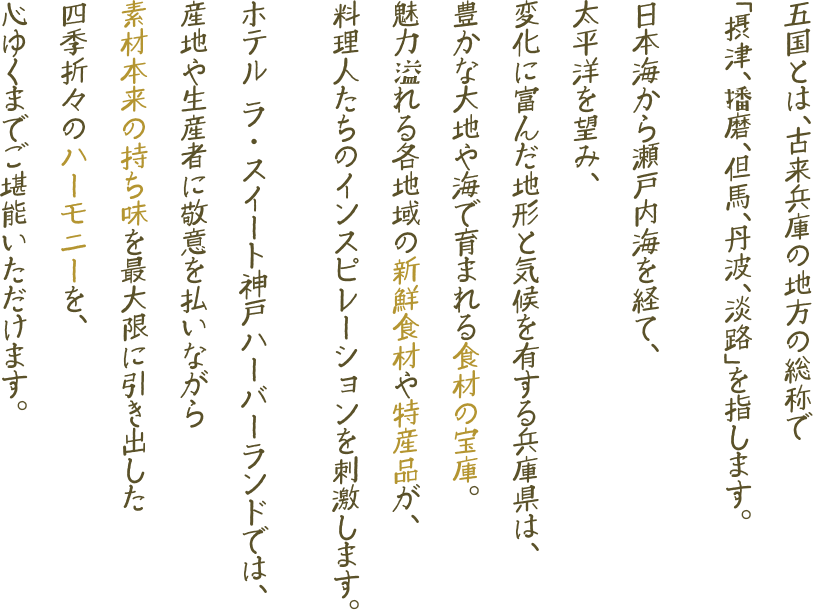 五国とは、古来兵庫の地方の総称で
「摂津、播磨、但馬、丹波、淡路」を指します。
日本海から瀬戸内海を経て、
太平洋を望み、
変化に富んだ地形と気候を有する兵庫県は、
豊かな大地や海で育まれる食材の宝庫。
魅力溢れる各地域の新鮮食材や特産品が、
料理人たちのインスピレーションを刺激します。
ホテル ラ・スイート神戸ハーバーランドでは、
産地や生産者に敬意を払いながら
素材本来の持ち味を最大限に引き出した
四季折々のハーモニーを、
心ゆくまでご堪能いただけます。